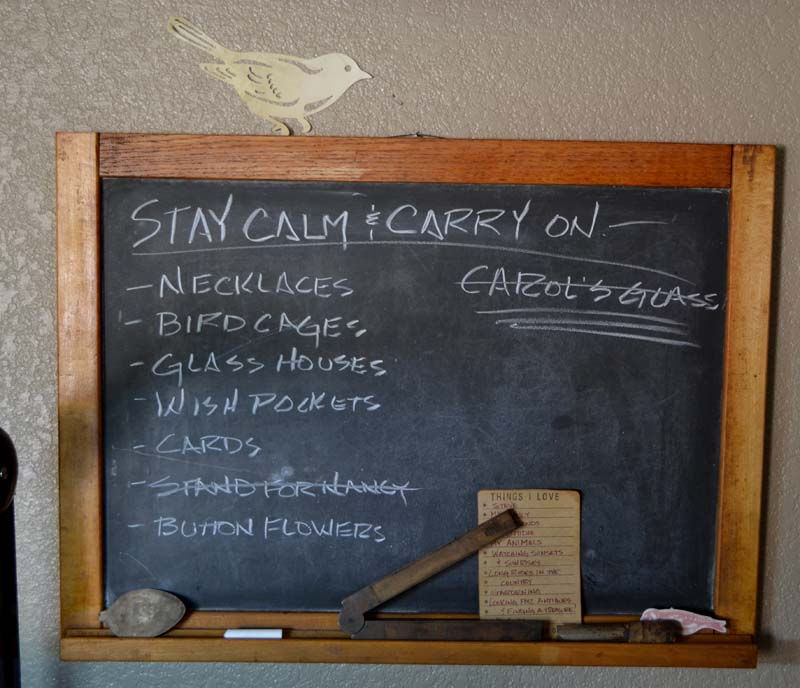 STAY CALM & CARRY ON -
- NECKLACES
- BIRD CAGES
- GLASS HOUSES
- WISH POCKETS
- CARDS
- STAND FOR NANCY
- BUTTON FLOWERS
CAROL'S GLASS
THINGS I LOVE
STEVE
MY ANIMALS
WATCHING SUNSETS
& SUNRISES
LONG RIDES IN THE
COUNTRY
GARDENING
LOOKING FOR ANTIQUES,
& FINDING A TREASURE